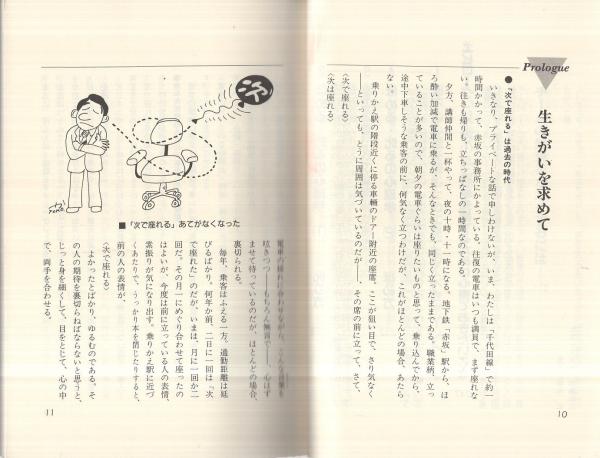 Prologue
生きがいを求めて
●「次で座れる」は過去の時代
いきなり、プライベートな話で申しわけないが、いま、わたしは「千代田線」で約一
時間かかって、赤坂の事務所にかよっている。往復の電車はいつも満員で、まず座れな
い。往きも帰りも、立ちっぱなしの一時間なのである。
夕方、講師仲間と一杯やって、夜の十時・十一時になる。地下鉄「赤坂」駅から、ほ
ろ酔い加減で電車に乗るが、そんなときでも、同じく立ったままである。職業柄、立っ
ていることが多いので、朝夕の電車ぐらいは座りたいものと思って、乗り込んでから、
途中下車しそうな乗客の前に、何気なく立つわけだが、これがほとんどの場合、あたら
ない。
乗りかえ駅の階段近くに停る車輛のドアー附近の座席。ここが狙い目で、さり気なく
――といっても、とうに周囲は気づいているのだが――、その席の前に立って、さて、
〈次で座れる〉
〈次は座れる〉
10
次
■「次で座れる」あてがなくなった
電車の揺れに合わせながら、
呟きつつ――もちろん無言で――、心はず
ませて待っているのだが、ほとんどの場合、
裏切られる。
毎年、乗客はふえる一方、通勤距離は延
びるばかり。何年か前、二日に一回は「次
で座れた」のだが、いまは、月に一回か二
回だ。その月一にめぐり合わせて座ったの
はよいが、今度は前に立っている人の表情、
素振りが気になり出す。乗りかえ駅に近づ
くあたりで、うっかり本を閉じたりすると、
前の人の表情が、
〈次で座れる〉
よかったとばかり、ゆるむのである。そ
の人の期待を裏切らねばならないと思うと、
じっと身を細くして、目をとじて、心の中
で、両手を合わせる。
11